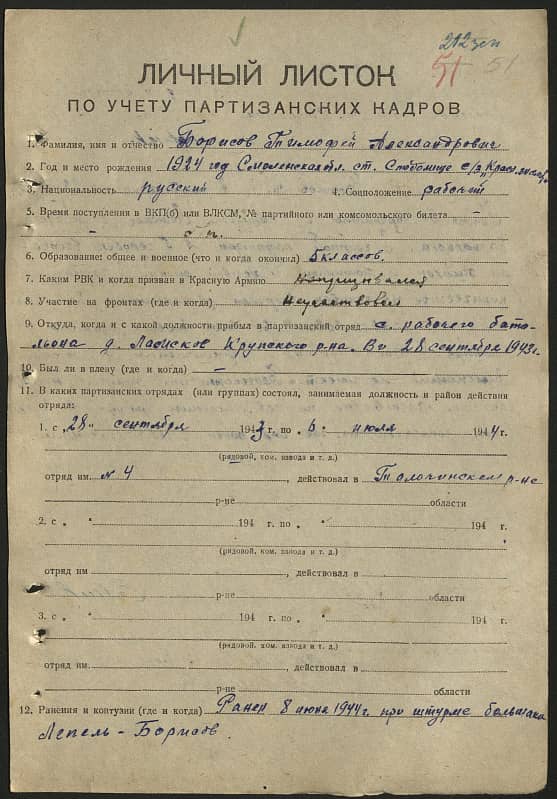 51 51
ЛИЧНЫЙ ЛИСТОК
ПО УЧЕТУ ПАРТИЗАНСКИХ КАДРОВ
1. Фамилия, имя и отчество Борисов Тимофей Александрович
2. Год и место рождения 1924 год Смоленская обл. ст. с/з "Красн.
3. Национальность русский 4. Соцположение рабочий
5. Время поступления в ВКП(б) или ВЛКСМ, № партийного или комсомольского билета –
– б п.
6. Образование: общее и военное (что и когда окончил) 5 классов.
7. Каким РВК и когда призван в Красную Армию непризывался
8. Участие на фронтах (где и когда) Неучаствовал
9. Откуда, когда и с какой должности прибыл в партизанский отряд с рабочего бата-
льона д. Крупского р-на. 28 сентября 1943 г.
10. Был ли в плену (где и когда) –
11. В каких партизанских отрядах (или группах) состоял, занимаемая должность и район действия
отряда:
1. с „28" сентября 1943 г. по „6 июля 1944 г.
(рядовой, ком. взвода и т. д.)
отряд им № 4, действовал в Толочинском р-не
р-не области
2. с „ " 194 г. по „ " 194 г.
(рядовой, ком. взвода и т. д.)
отряд им , действовал в
р-не области
3. с „ " 194 г. по „ " 194 г.
(рядовой, ком. взвода и т. д.)
отряд им , действовал в
р-не области
12. Ранения и контузии (где и когда) Ранен 8 июня 1944 г. при штурме большака
Лепель – Борисов.